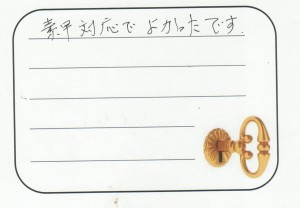 素早対応でよかったです.